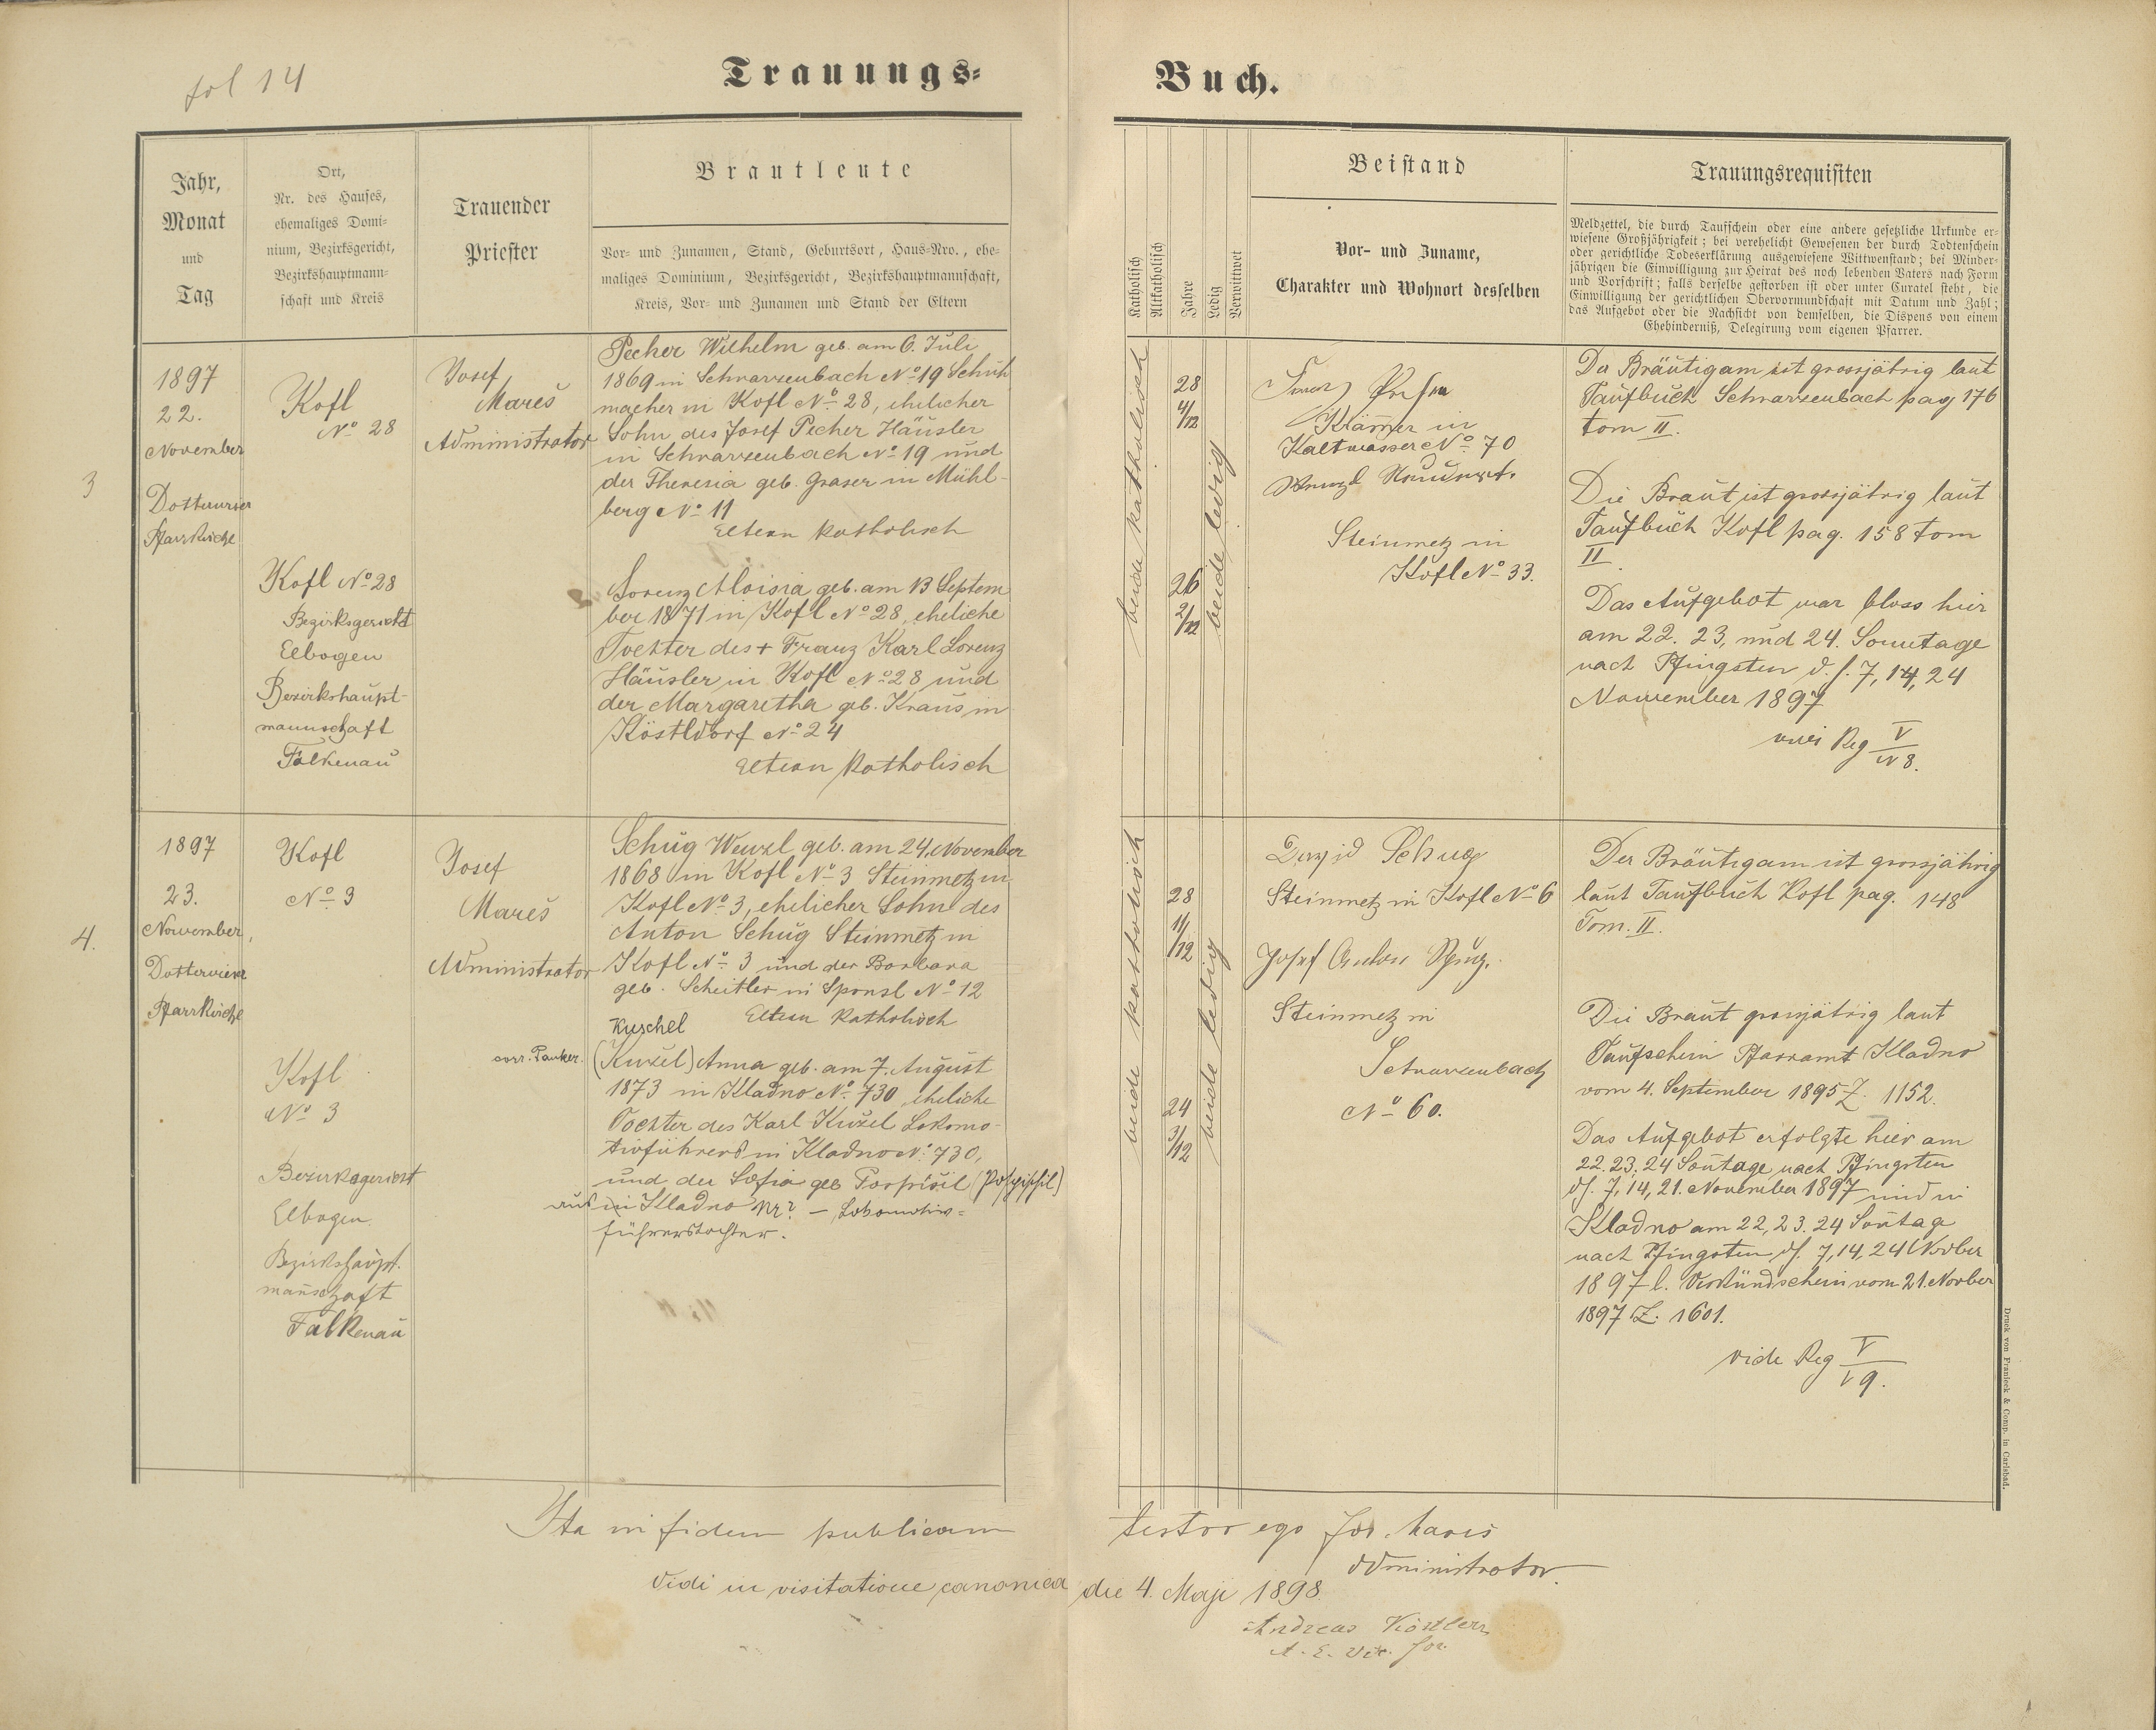 fol 14
Trauungs-
Buch.
Jahr,
Monat
und
Tag
Ort,
Nr. des Hauses,
ehemaliges Domi-
nium, Bezirksgericht,
Bezirkshauptmann-
schaft und Kreis
Trauender
Priester
Brautleute
Vor- und Zunamen, Stand, Geburtsort, Haus-Nro., ehe-
maliges Dominium, Bezirksgericht, Bezirkshauptmannschaft,
Kreis, Vor- und Zunamen und Stand der Eltern
Katholisch
Altkatholisch
Jahre
Ledig
Verwittwet
Beistand
Vor- und Zuname,
Charakter und Wohnort desselben
Trauungsrequisiten
Meldzettel, die durch Taufschein oder eine andere gesetzliche Urkunde er-
wiesene Großjährigkeit; bei verehelicht Gewesenen der durch Todtenschein
oder gerichtliche Todeserklärung ausgewiesene Wittwenstand; bei Minder-
jährigen die Einwilligung zur Heirat des noch lebenden Vaters nach Form
und Vorschrift; falls derselbe gestorben ist oder unter Curatel steht, die
Einwilligung der gerichtlichen Obervormundschaft mit Datum und Zahl;
das Aufgebot oder die Nachsicht von demselben, die Dispens von einem
Ehehinderniß, Delegirung vom eigenen Pfarrer.
3
1897
22.
November
Pfarrkirche
Kofl
No 28
Kofl No 28
Bezirksgericht
Elbogen
Bezirkshaupt-
mannschaft
Falkenau
Josef
Mareš
Administrator
Pecher Wilhelm geb. am 6. Juli
1869 in Schwarzenbach No 19 Schuh
macher in Kofl No 28, ehelicher
Sohn des Josef Pecher Häusler
in Schwarzenbach No 19 und
der Theresia geb. Graser in Mühl-
berg No 11
Eltern katholisch
Lorenz Aloisia geb. am 13 Septem
ber 1871 in Kofl No 28, eheliche
Tochter des + Franz Karl Lorenz
Häusler in Kofl No 28 und
der Margaretha geb. Kraus in
Köstldorf No 24
Eltern katholisch
beide katholisch
28
4/12
26
2/12
beide ledig
Krämer in
Kaltwasser No 70
Steinmetz in
Kofl No 33.
Der Bräutigam ist grossjährig laut
Taufbuch Schwarzenbach pag 176
tom II.
Die Braut ist grossjährig laut
Taufbuch Kofl pag. 158 tom
II.
Das Aufgebot war bloss hier
am 22. 23, und 24. Sonntage
nach Pfingsten d. s. 7, 14, 24
November 1897
Reg V
N 8.
4.
1897
23.
November,
Pfarrkirche
Kofl
No 3
Kofl
No 3
Bezirksgericht
Elbogen
Bezirkshaupt-
mannschaft
Falkenau
Josef
Mareš
Administrator
Schug Wenzl geb. am 24. November
1868 in Kofl No 3 Steinmetz in
Kofl No 3, ehelicher Sohn des
Anton Schug Steinmetz in
Kofl No 3 und der Barbara
geb. Scheitler in Sponsl No 12
Eltern katholisch
Kuschel
corr. Pauker.
(Kužel) Anna geb. am 7. August
1873 in Kladno No 730 eheliche
Tochter des Karl Kužel Lokomo-
tivführers in Kladno No 730,
und der Sofia geb Pospíšil (Pospischil)
aus in Kladno Nr? – Lokomotiv-
führerstochter.
beide katholisch
28
11/12
24
3/12
beide ledig
David Schug
Steinmetz in Kofl No 6
Josef Anton
Steinmetz in
Schwarzenbach
No 60.
Der Bräutigam ist grossjährig
laut Taufbuch Kofl pag. 148
Tom. II.
Die Braut grossjährig laut
Taufschein Pfarramt Kladno
vom 4. September 1895 Z. 1152.
Das Aufgebot erfolgte hier am
22. 23. 24 Sontage nach Pfingsten
ds. 7, 14, 21. November 1897 und in
Kladno am 22, 23. 24 Sontage
nach Pfingsten ds. 7, 14, 24 Novber
1897 l. Verkündschein vom 21. Novber
1897 Z. 1601.
vide Reg V
19.
Ita in fidem publicam
testor ego Jos. Mareš
Administrator.
Vidi in visitatione canonica die 4. Maji 1898.
Andreas Köstler
Druck von Franieck & Comp. in Carlsbad.